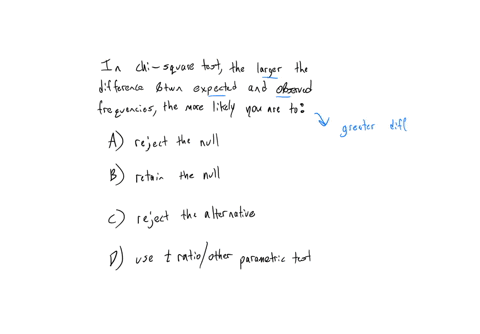 In chi-square test, the larger the
difference btwn expected and observed
frequencies, the more likely you are to:
greater diff
A) reject the null
B) retain the null
C) reject the alternative
D) use t ratio/other parametric test